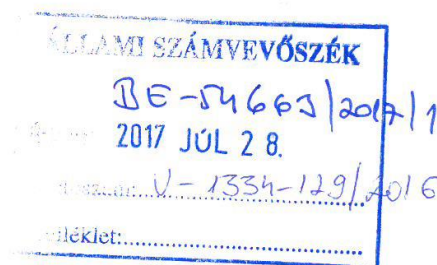 ÁLLAMI SZÁMVEVŐSZÉK
BE-54663/2017/1
2017 JÚL 28.
V-1334-129/2016
melléklet: